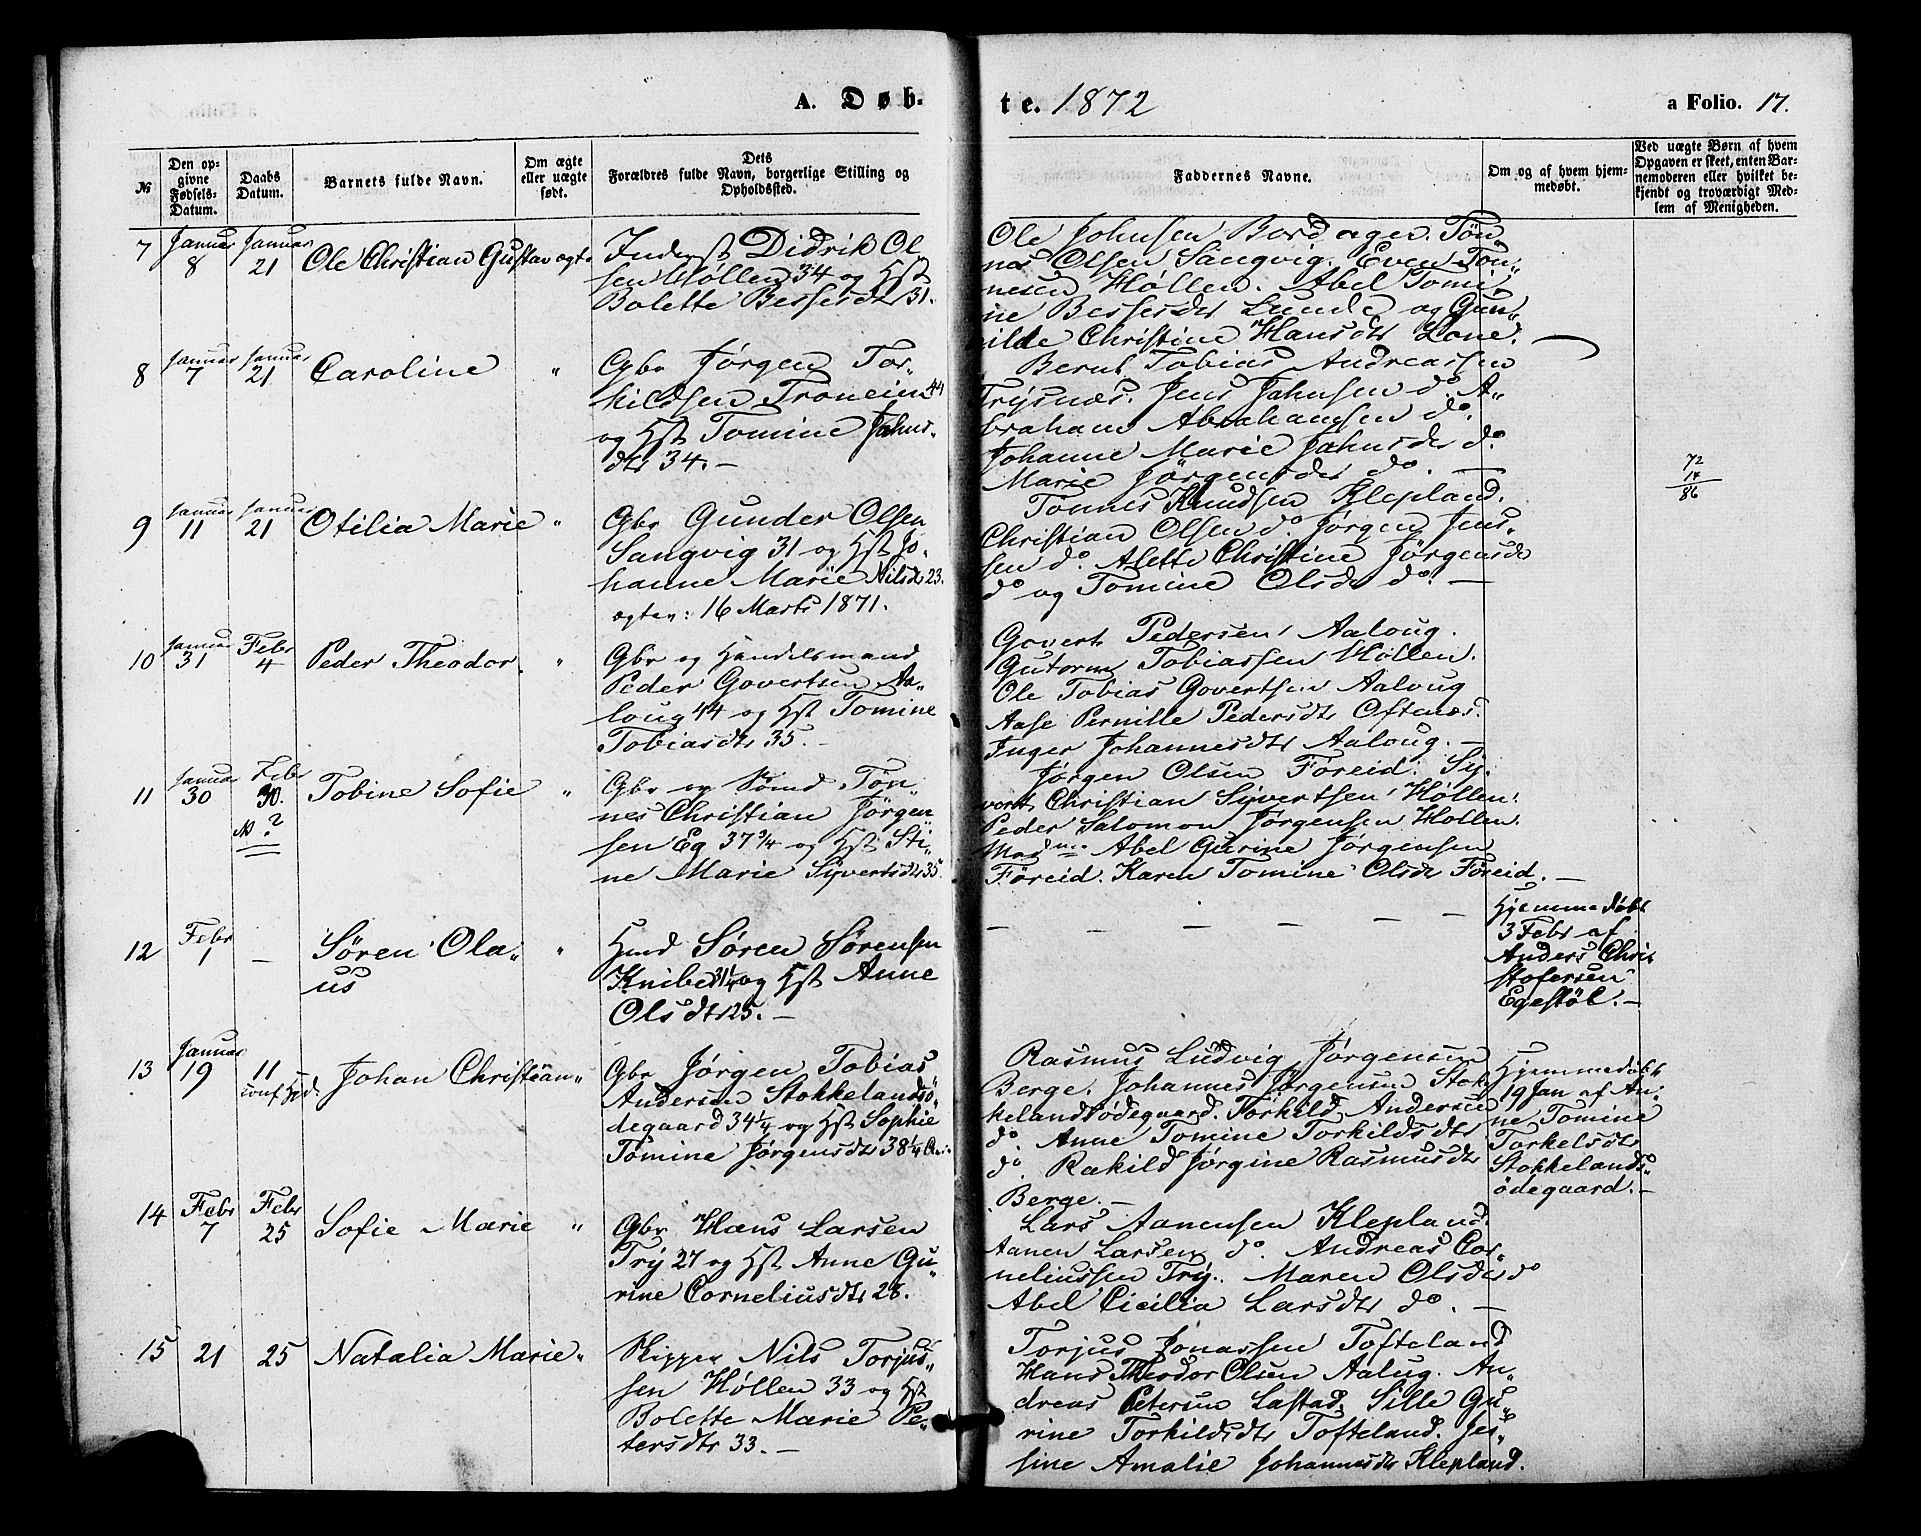 A. Døb-
te. 1872
a Folio. 17.
№
Den op-
givne
Fødsels-
Datum.
Daabs
Datum.
Barnets fulde Navn.
Om ægte
eller uægte
født.
Dets
Forældres fulde Navn, borgerlige Stilling og
Opholdssted.
Faddernes Navne.
Om og af hvem hjem-
medøbt.
Ved uægte Børn af hvem
Opgaven er skeet, enten Bar-
nemoderen eller hvilket be-
kjendt og troværdigt Med-
lem af Menigheden.
7
Januar
8
Januar
21
Ole Christian Gustav ægte
Inderst Didrik Ol
sen Høllen 34 og Hst
Bolette Bessesdtr 31.
Ole Johnsen Tøn
nes Olsen Sangvig. Even Tøn„
nesen Høllen. Abel Tomi„
ne Bessesdtr Lunde og Gun„
hilde Christine Hansdtr Lone.
8
Januar
7
Januar
21
Caroline "
Gbr Jørgen Tor„
kildsen Troneim 44
og Hst Tomine Jahns„
dtr 34. –
Bernt Tobias Andreassen
Trysnæs. Jens Jahnsen do. A„
braham Abrahamsen do.
Johanne Marie Jahnsdtr do.
Marie Jörgensdtr do. –
72
14
86
9
Januar
11
Januar
21
Otilia Marie "
Gbr Gunder Olsen
Sangvig 31 og Hst Jo„
hanne Marie Nilsdtr 23.
ægtev: 16 Marts 1871.
Tønnes Knudsen Klepland.
Christian Olsen do Jørgen Jens„
sen do. Alette Christine Jörgensdtr
do og Tomine Olsdtr do. –
10
Januar
31
Febr
4
Peder Theodor. "
Gbr og Handelsmand
Peder Govertsen Aa„
loug 44 og Hst Tomine
Tobiasdtr 35. –
Govert Pedersen Aaloug.
Gutorm Tobiassen Høllen.
Ole Tobias Govertsen Aaloug
Aase Pernille Pedersdtr Oftenæs.
Inger Johannesdtr Aaloug. –
11
Januar
30
Febr
30.
№ ?
Tobine Sofie "
Gbr og Sømd Tøn„
nes Christian Jörgen
sen Eg 37 3/4 og Hst Sti„
ne Marie Syvertsdtr 35.
Jørgen Olsen Føreid. Sy„
vert Christian Syvertsen Høllen.
Peder Salomon Jørgensen Høllen.
Madme Abel Gurine Jörgensen
Føreid. Karen Tomine Olsdtr Føreid. –
12
Febr
1
–
Søren Ola„
us
"
Hmd Søren Sørensen
Knibe 31 1/4 og Hst Anne
Olsdtr 25. –
– – – – – – –
Hjemmedøbt
3 Febr af
Anders Chri
stofersen
Egestøl. –
13
Januar
19
11
conf Hjd.
Johan Christian "
Gbr Jørgen Tobias
Andersen Stokkelandsö„
degaard 34 1/4 og Hst Sophie
Tomine Jörgensdtr 38 1/4
Rasmus Ludvig Jörgensen
Berge. Johannes Jørgensen Stok
kelandsödegaard. Torkild Andersen
do. Anne Tomine Torkildsdtr
do. Rakild Jørgine Rasmusdtr
Berge. –
Hjemmedøbt
19 Jan af An„
ne Tomine
Torkelsdtr
Stokkelands„
ödegaard. –
14
Febr
7
Febr
25
Sofie Marie "
Gbr Hans Larsen
Try 27 og Hst Anne Gu„
rine Corneliusdtr 28.
Lars Aanensen Klepland.
Aanen Larsen do. Andreas Cor„
neliussen Try. Maren Olsdtr do
Abel Cicilia Larsdtr do. –
15
21
25
Natalia Marie "
Skipper Nils Torjus„
sen Høllen 33 og Hst
Bolette Marie Pe„
tersdtr 33. –
Torjus Jonassen Tofteland
Hans Theodor Olsen Aalug. An„
dreas Petersen Lastad. Sille Gu„
rine Torkildsdtr Tofteland. Jes„
sine Amalie Johannesdtr Klepland.